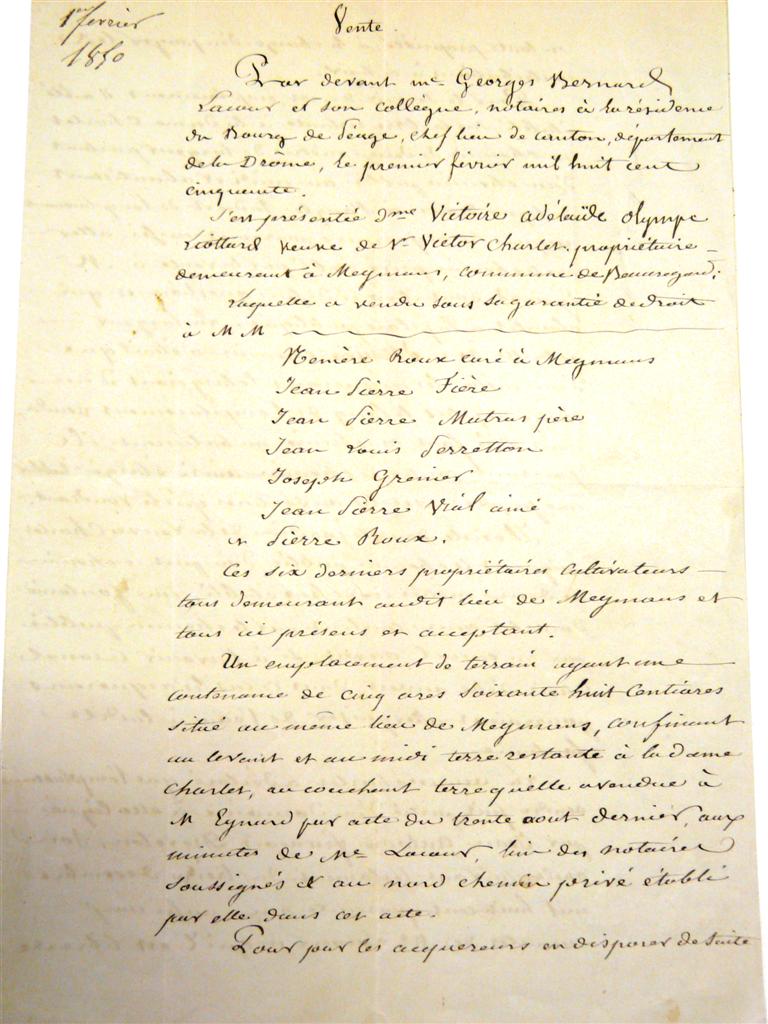 1er février
1850
Vente
Par devant me Georges Bernard
Lacour et son collègue, notaires à la résidence
du Bourg de Péage, chef lieu de canton, département
de la Drôme, le premier février mil huit cent
cinquante.
S'est présentée dme Victoire adélaïde olympe
Liottard veuve de Mr Victor Charlet, propriétaire
demeurant à Meymans, commune de Beauregard;
Laquelle a vendu sous sa garantie de droit
à M M
Roux curé à Meymans
Jean Pierre Fière
Jean Pierre Mutrus père
Jean Louis Perretton
Joseph Grenier
Jean Pierre Vial ainé
et Pierre Roux.
Ces six derniers propriétaires cultivateurs
tous demeurant audit lieu de Meymans et
tous ici présens et acceptant.
Un emplacement de terrain ayant une
contenance de cinq ares soixante huit Centiares
situé au même lieu de Meymans, confinant
au levant et au midi terre restante à la dame
Charlet, au couchant terre qu'elle a vendue à
M Eynard par acte du trente aout dernier, aux
minutes de Me Lacour, l'un des notaires
soussignés et au nord chemin privé établi
par elle dans cet acte.
Pour par les acquereurs en disposer de suite